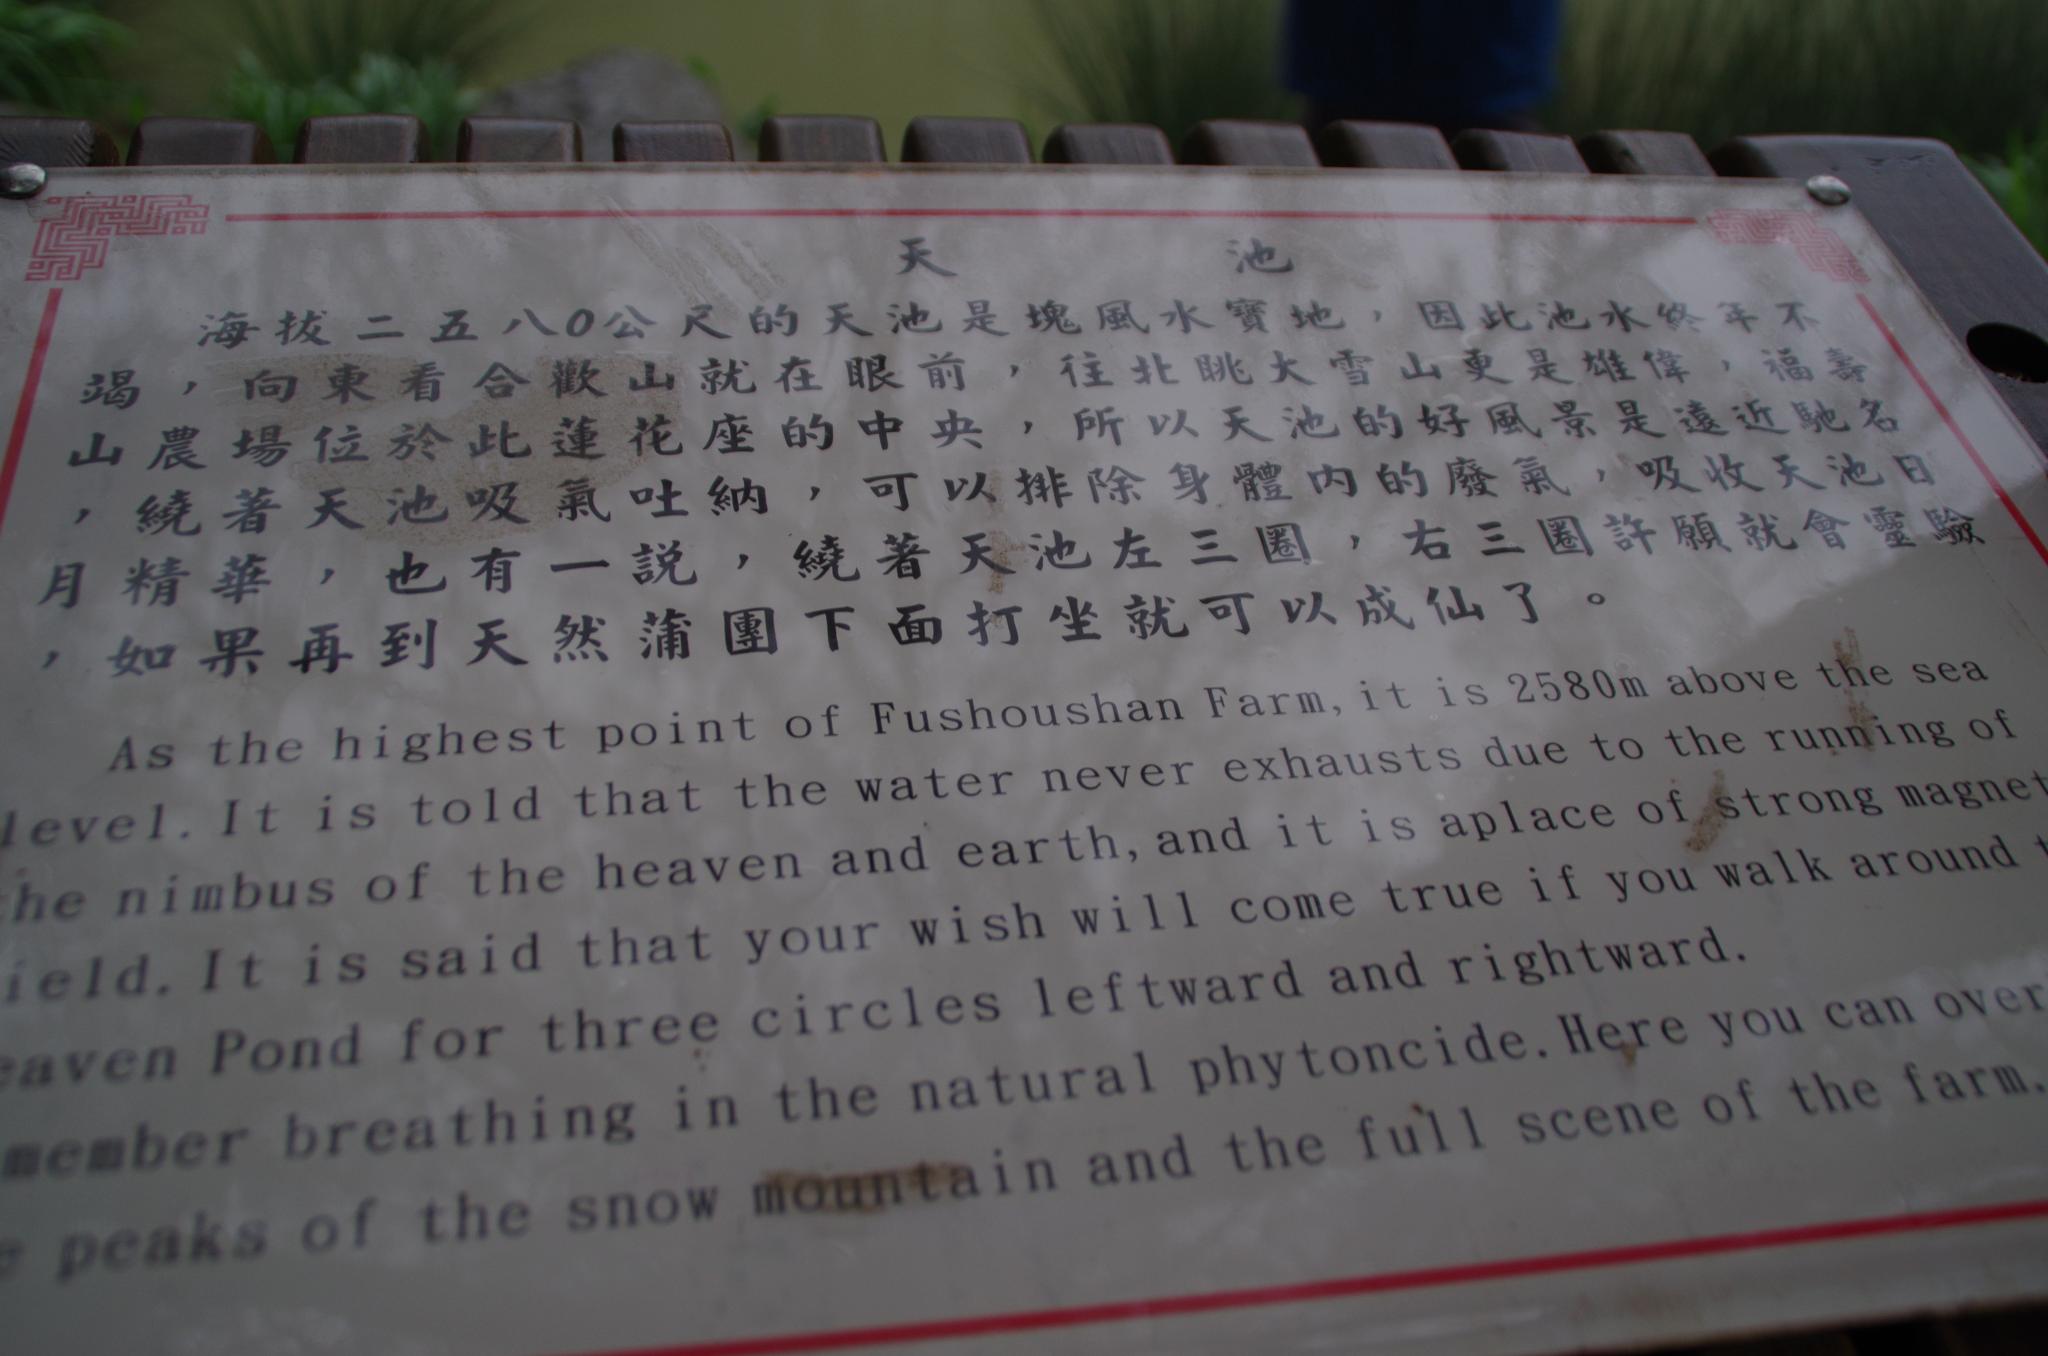 天池
海拔二五八0公尺的天池是塊風水寶地，因此池水終年不
竭，向東看合歡山就在眼前，往北眺大雪山更是雄偉，福壽
山農場位於此蓮花座的中央，所以天池的好風景是遠近馳名
，繞著天池吸氣吐納，可以排除身體內的廢氣，吸收天池日
月精華，也有一說，繞著天池左三圈，右三圈許願就會靈驗
，如果再到天然蒲團下面打坐就可以成仙了。
As the highest point of Fushoushan Farm, it is 2580m above the sea
level. It is told that the water never exhausts due to the running of
the nimbus of the heaven and earth, and it is aplace of strong magnet
ield. It is said that your wish will come true if you walk around t
eaven Pond for three circles leftward and rightward.
member breathing in the natural phytoncide. Here you can over
e peaks of the snow mountain and the full scene of the farm.